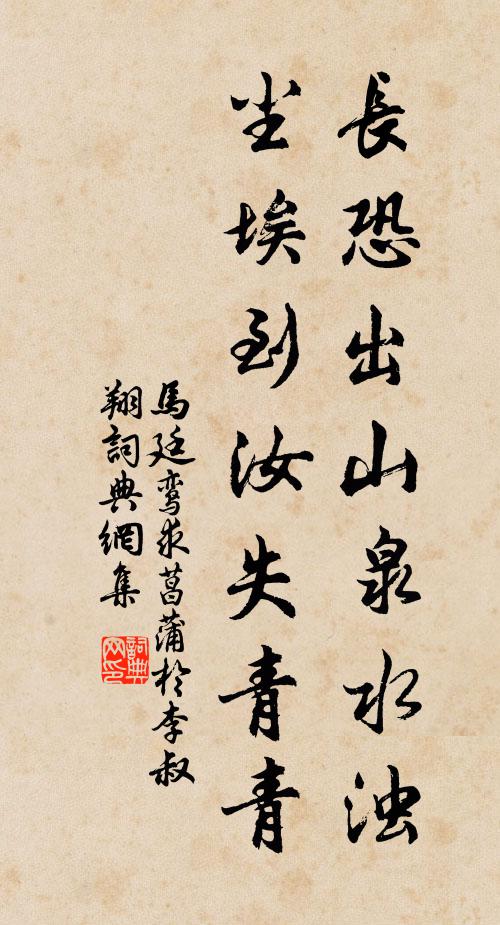 長恐出山泉水浊
尘埃到汝失青青
馬廷鸾求菖蒲於李叔
翔詞典網集
詞典网印